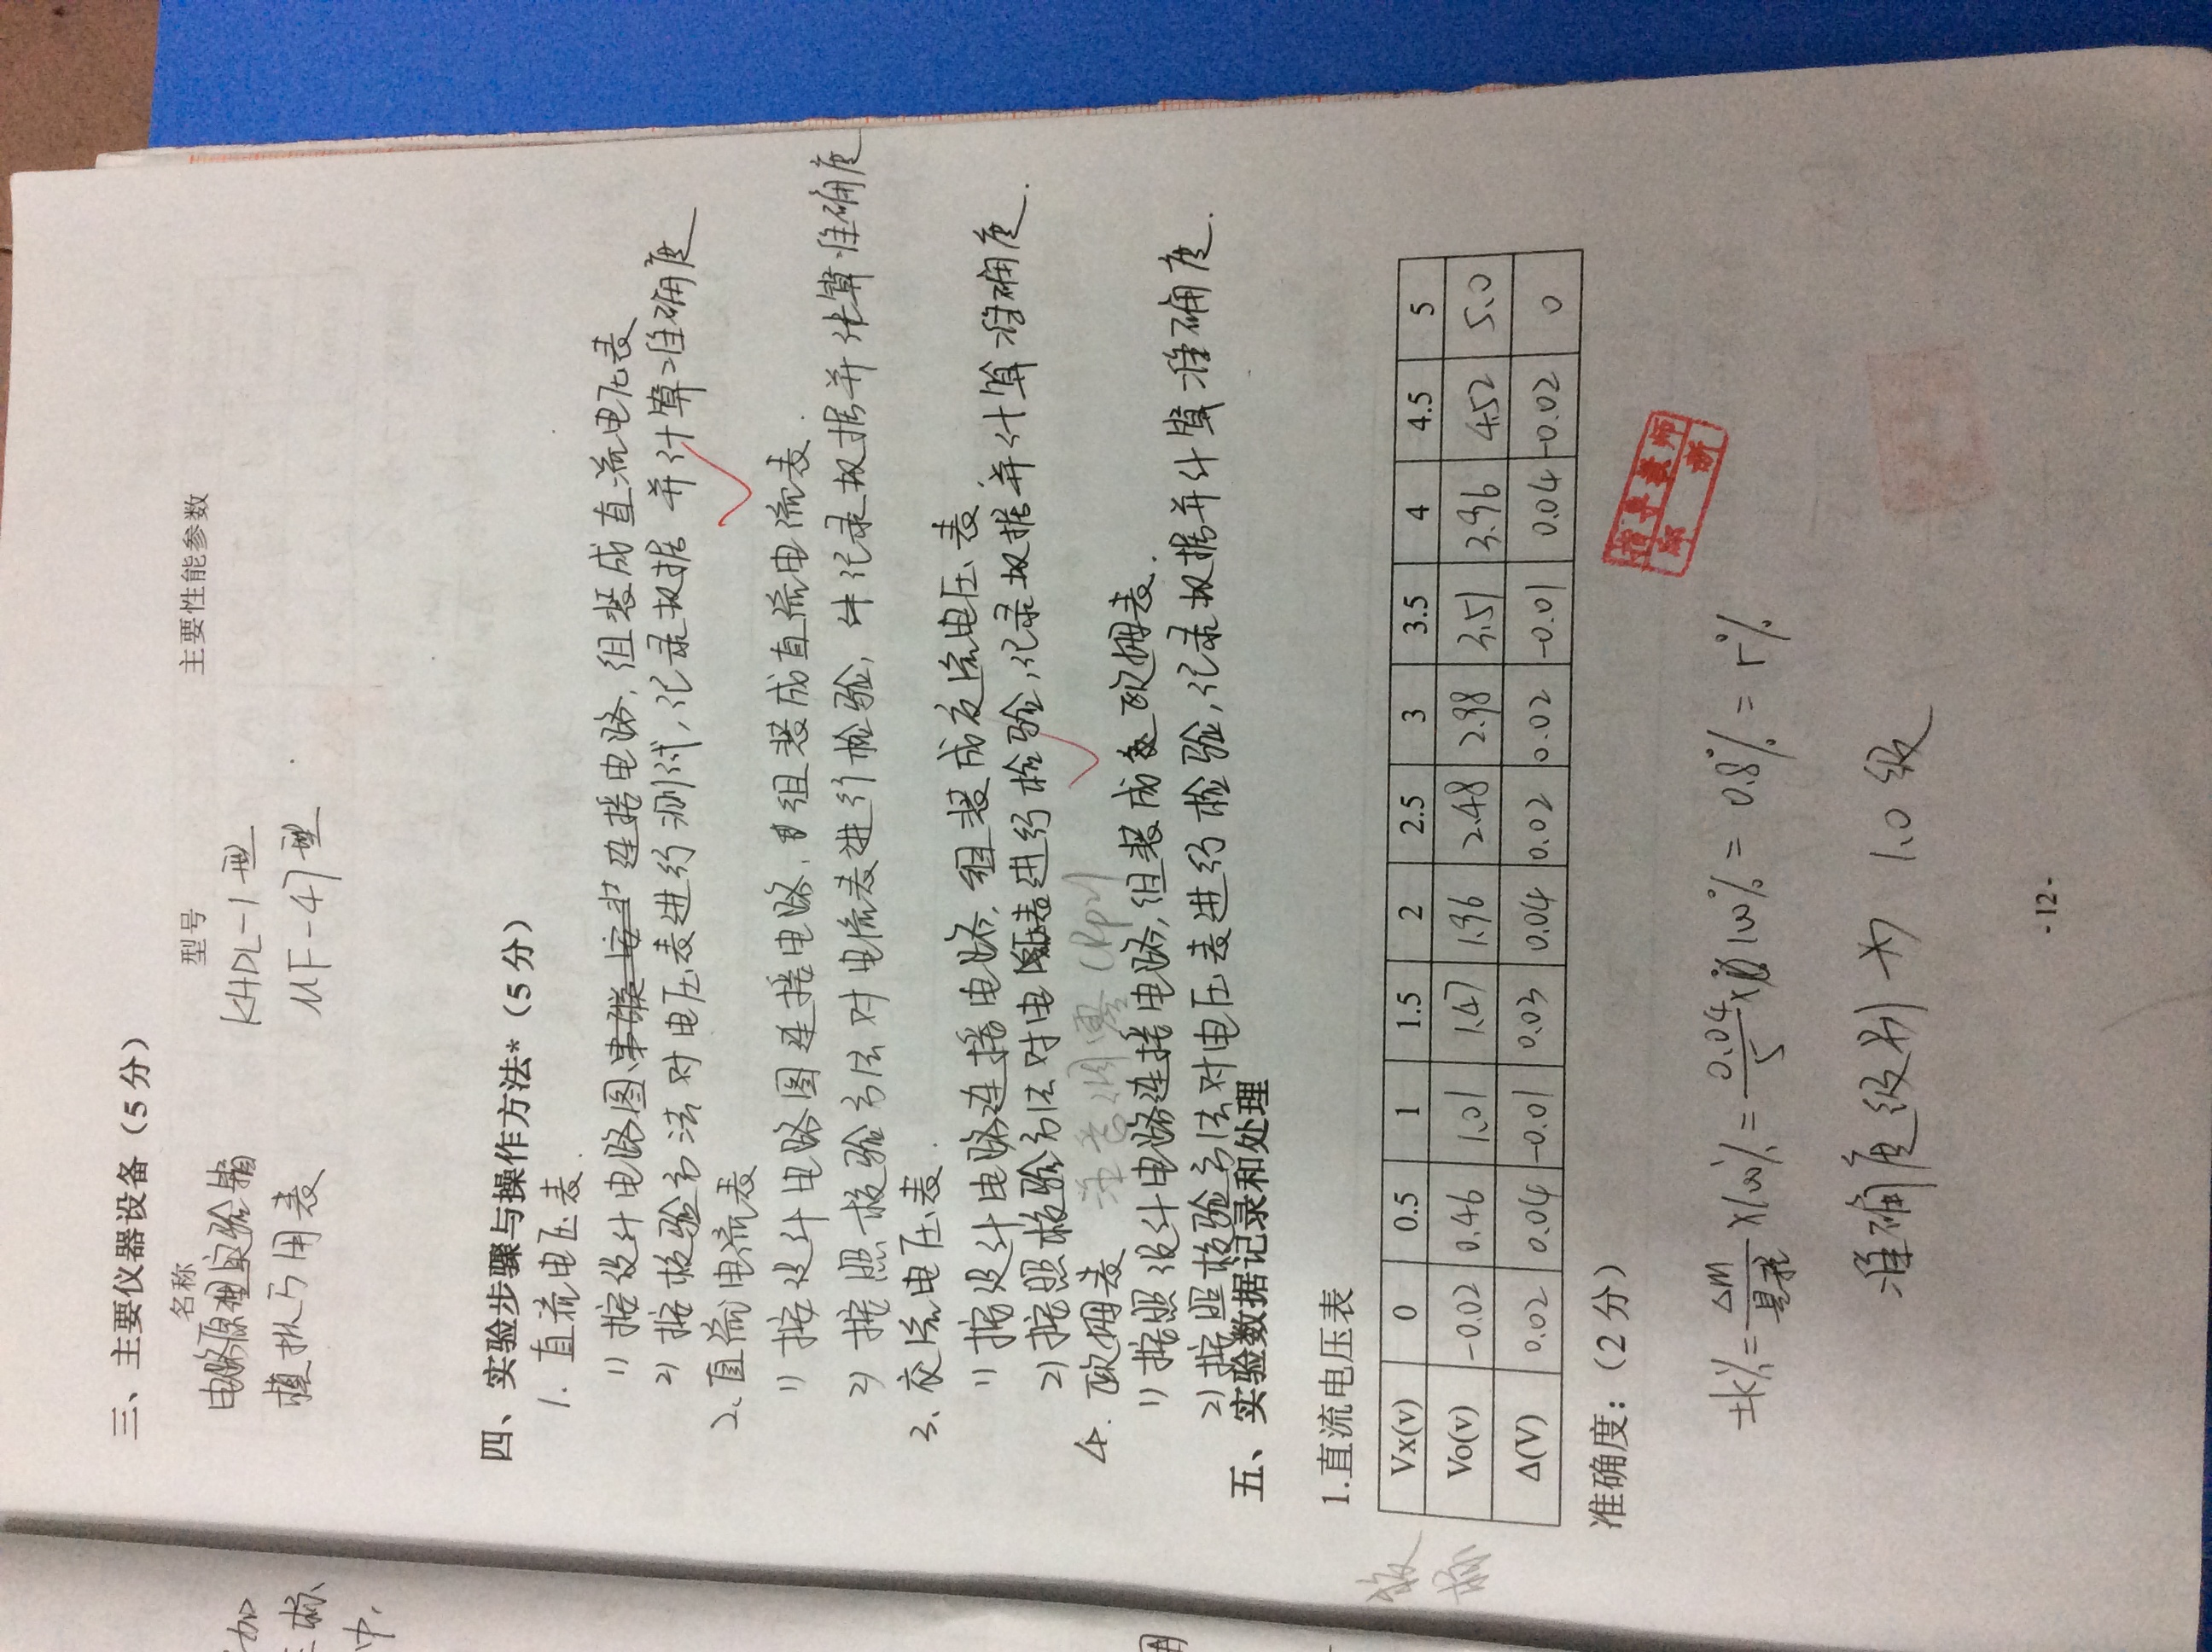 三、主要仪器设备（5分）
名称 型号 主要性能参数
电路原理实验箱 KHDL-1型
模拟万用表 MF-47型
四、实验步骤与操作方法*（5分）
1. 直流电压表.
1) 按设计电路图 连接电路, 组装成直流电压表
2) 按校验方法对电压表进行测试, 记录数据 并计算准确度
2、直流电流表
1) 按设计电路图连接电路, 组装成直流电流表.
2) 按照校验方法对电流表进行检验, 记录数据并计算准确度
3、交流电压表.
1) 按设计电路连接电路, 组装成交流电压表.
2) 按照校验方法对电压表进行检验, 记录数据并计算准确度.
4. 欧姆表 注意调零 (Rp2)
1) 按照设计电路连接电路, 组装成欧姆表.
2) 按照校验方法对电压表进行检验, 记录数据并计算准确度.
五、实验数据记录和处理
1.直流电压表
Vx(v) 0 0.5 1 1.5 2 2.5 3 3.5 4 4.5 5
Vo(v) -0.02 0.46 1.01 1.47 1.96 2.48 2.98 3.51 3.96 4.52 5.0
Δ(V) 0.02 0.04 -0.01 0.03 0.04 0.02 0.02 -0.01 0.04 -0.02 0
准确度：（2分）
指导教师
±k% = ΔM/量程 ×100% = 0.04/5 × 100% = 0.8% = r%
准确度级别为 1.0 级
- 12 -
加
标
中.